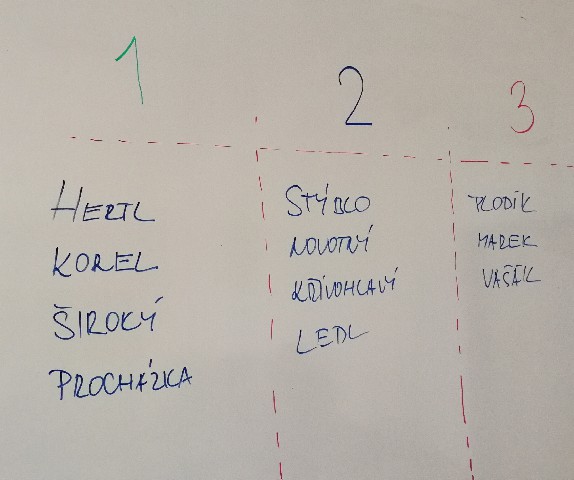 1
2
3
HERTL
KOREL
ŠIROKÝ
PROCHÁZKA
STÝBLO
NOVOTNÝ
KŘIVOHLAVÝ
LEDL
PLODÍK
MAREK
VAŠÁK